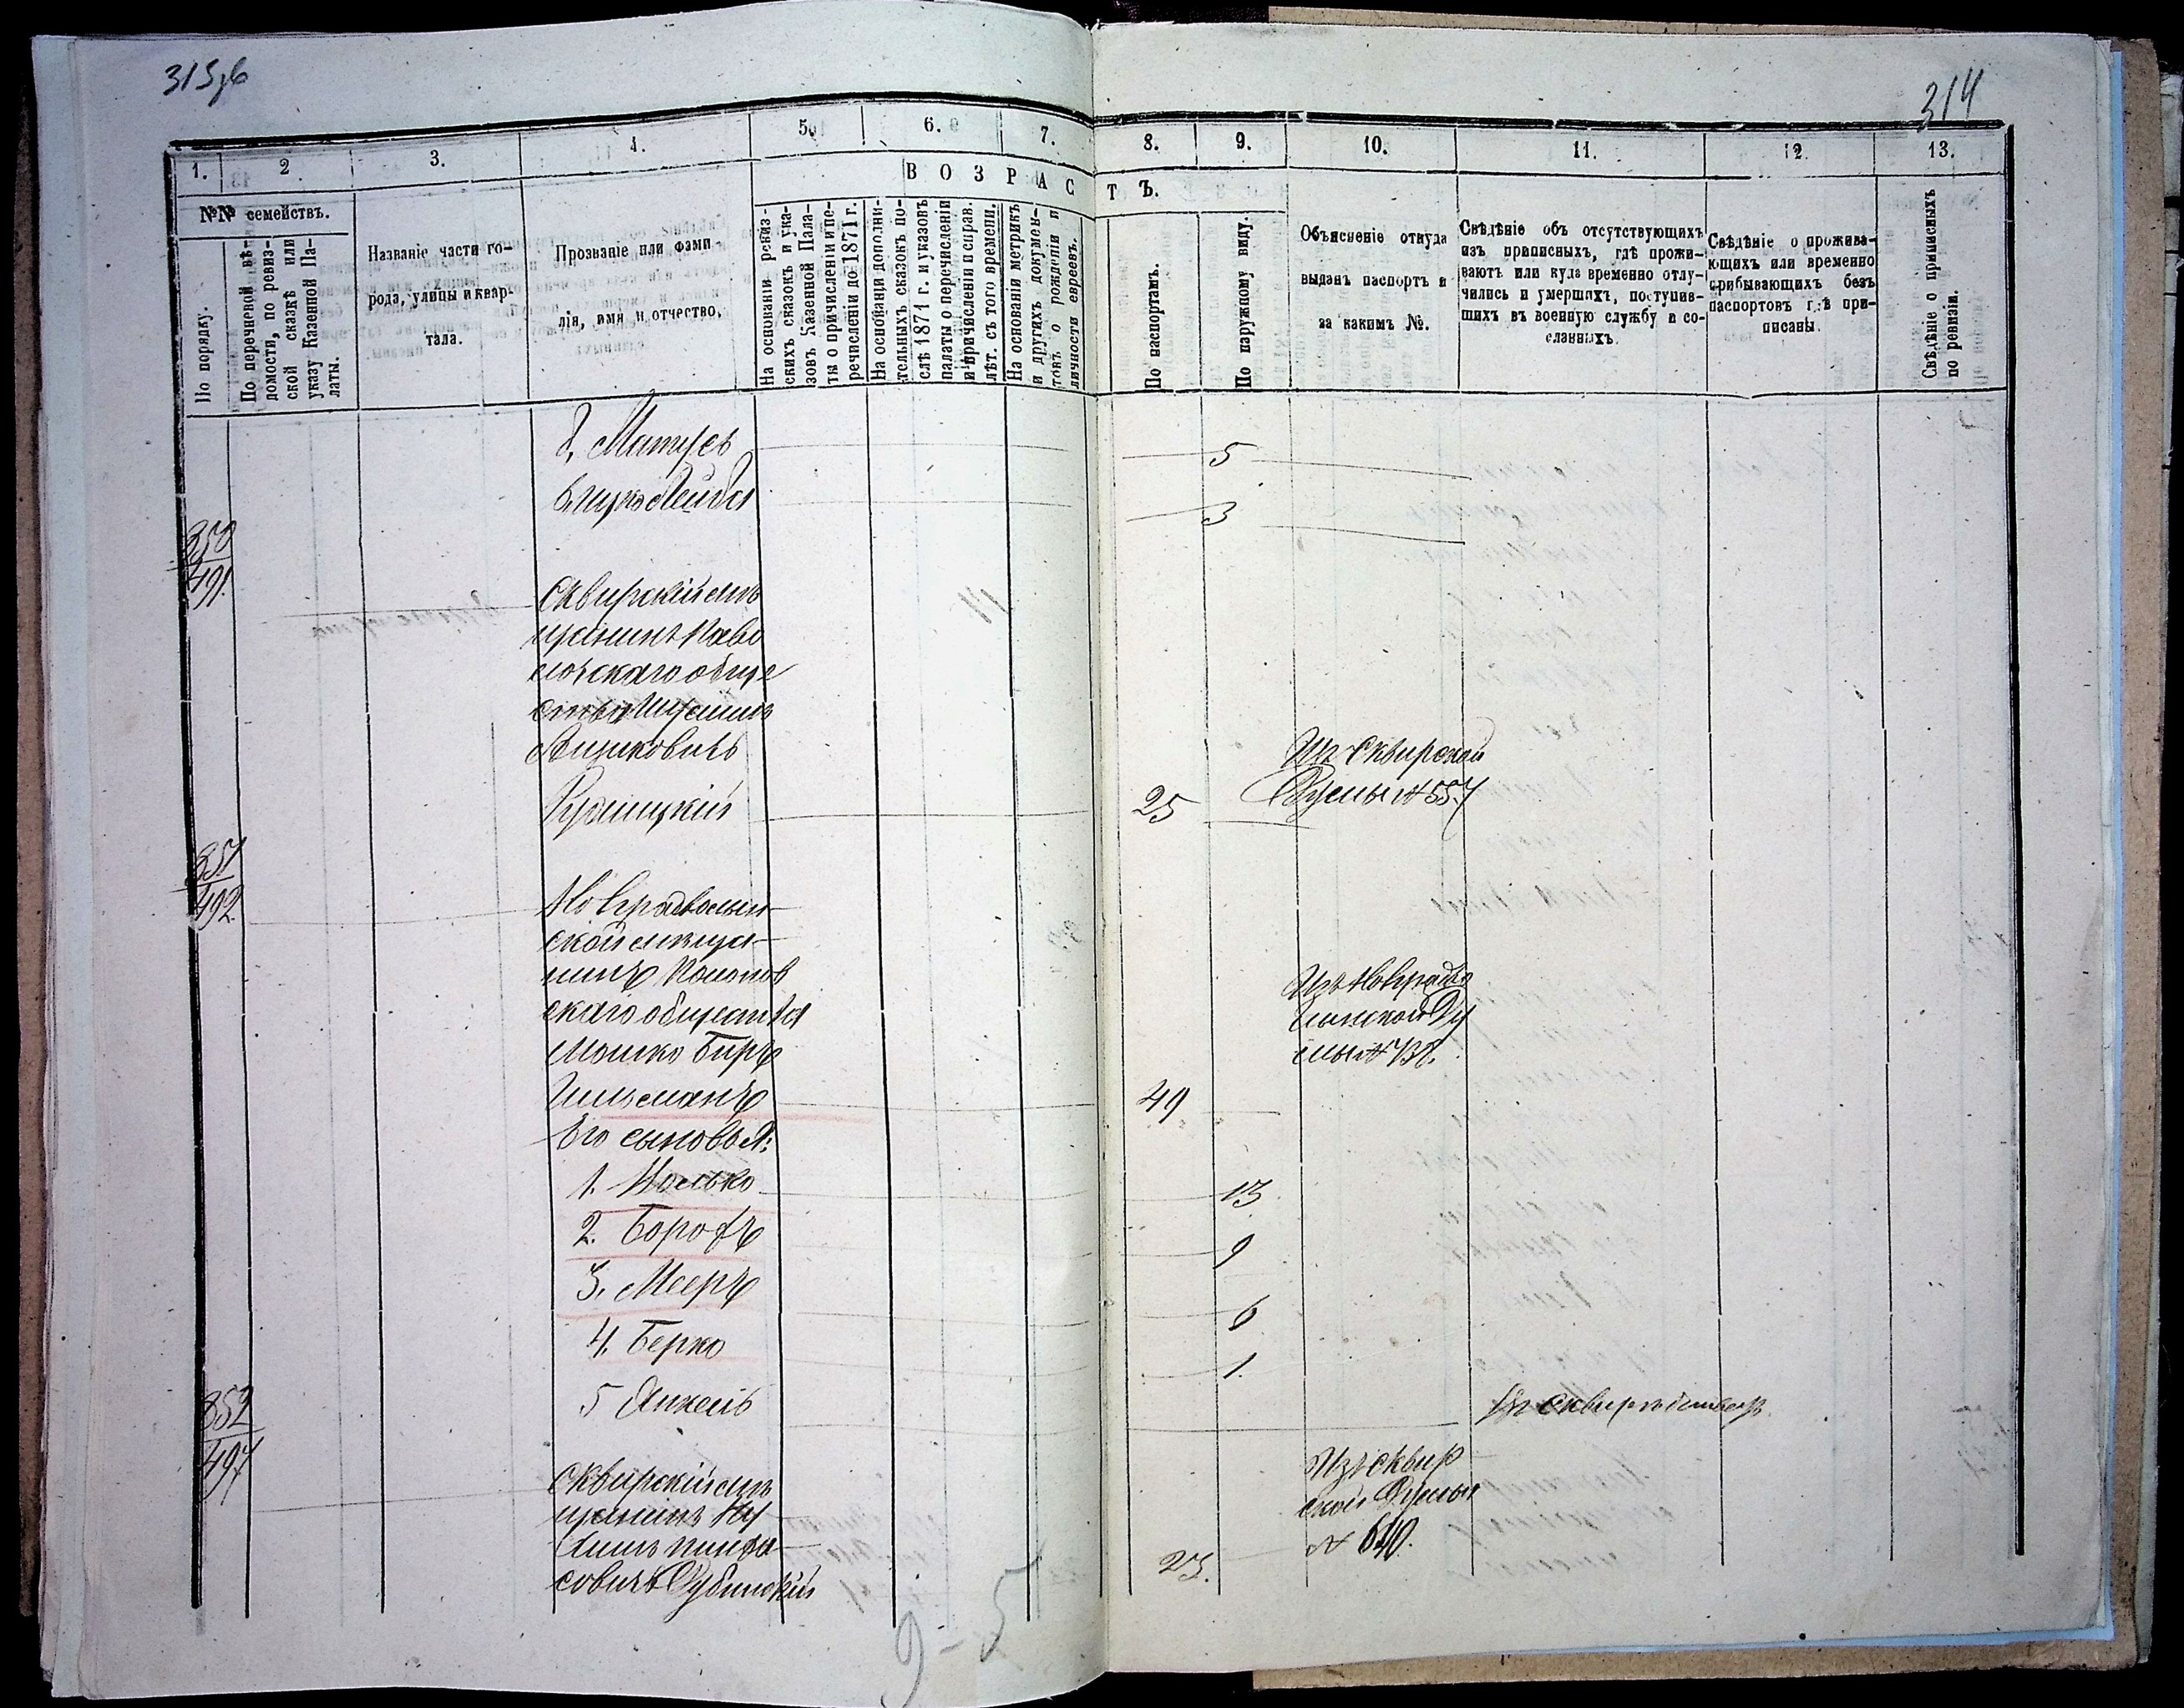 314
1.
2
3.
4.
5.
6.
7.
8.
9.
10.
11.
12.
13.
ВОЗРАСТЪ.
№№ семействъ.
По порядку.
По перечневой вѣ-
домости, по ревиз-
ской сказкѣ или
указу Казенной Па-
латы.
Названіе части го-
рода, улицы и квар-
тала.
Прозваніе или фами-
лія, имя и отчество.
На основаніи ревиз-
скихъ сказокъ и ука-
зовъ Казенной Пала-
ты о причисленіи и пе-
речисленіи до 1871 г.
На основаніи дополни-
тельныхъ сказокъ по-
слѣ 1871 г. и указовъ
палаты о перечисленіи
и причисленіи и справ.
лѣт. съ того времени.
На основаніи метрикъ
и другихъ докумен-
товъ о рожденіи и
личности евреевъ.
По паспортамъ.
По наружному виду.
Объясненіе откуда
выданъ паспортъ и
за какимъ №.
Свѣдѣніе объ отсутствующихъ
изъ приписныхъ, гдѣ прожи-
ваютъ или куда временно отлу-
чились и умершихъ, поступив-
шихъ въ военную службу и со-
сланныхъ.
Свѣдѣніе о прожива-
ющихъ или временно
прибывающихъ безъ
паспортовъ гдѣ при-
писаны.
Свѣдѣніе о приписныхъ
по ревизіи.
Матусъ
5
Лейба
3
350
491.
Сквирскій мѣ
щанинъ Паво
лочскаго обще
ства
Ицковичъ
Изъ Сквирской
Думы № 557
25
351
492.
Новградволын
ской мѣща
нинъ
скаго общества
Мошко Беръ
Изъ Новградво
лынской Ду
мы №
49
Его сыновья:
1. Іосько
13
2. Борохъ
9
3. Мееръ
6
4. Берко
1.
5 Янкель
352
497
Сквирскій мѣ
щанинъ Ну
химъ Пинха
совичъ Дубинскій
Изъ Сквир
ской Думы
№ 640.
23.
9-5